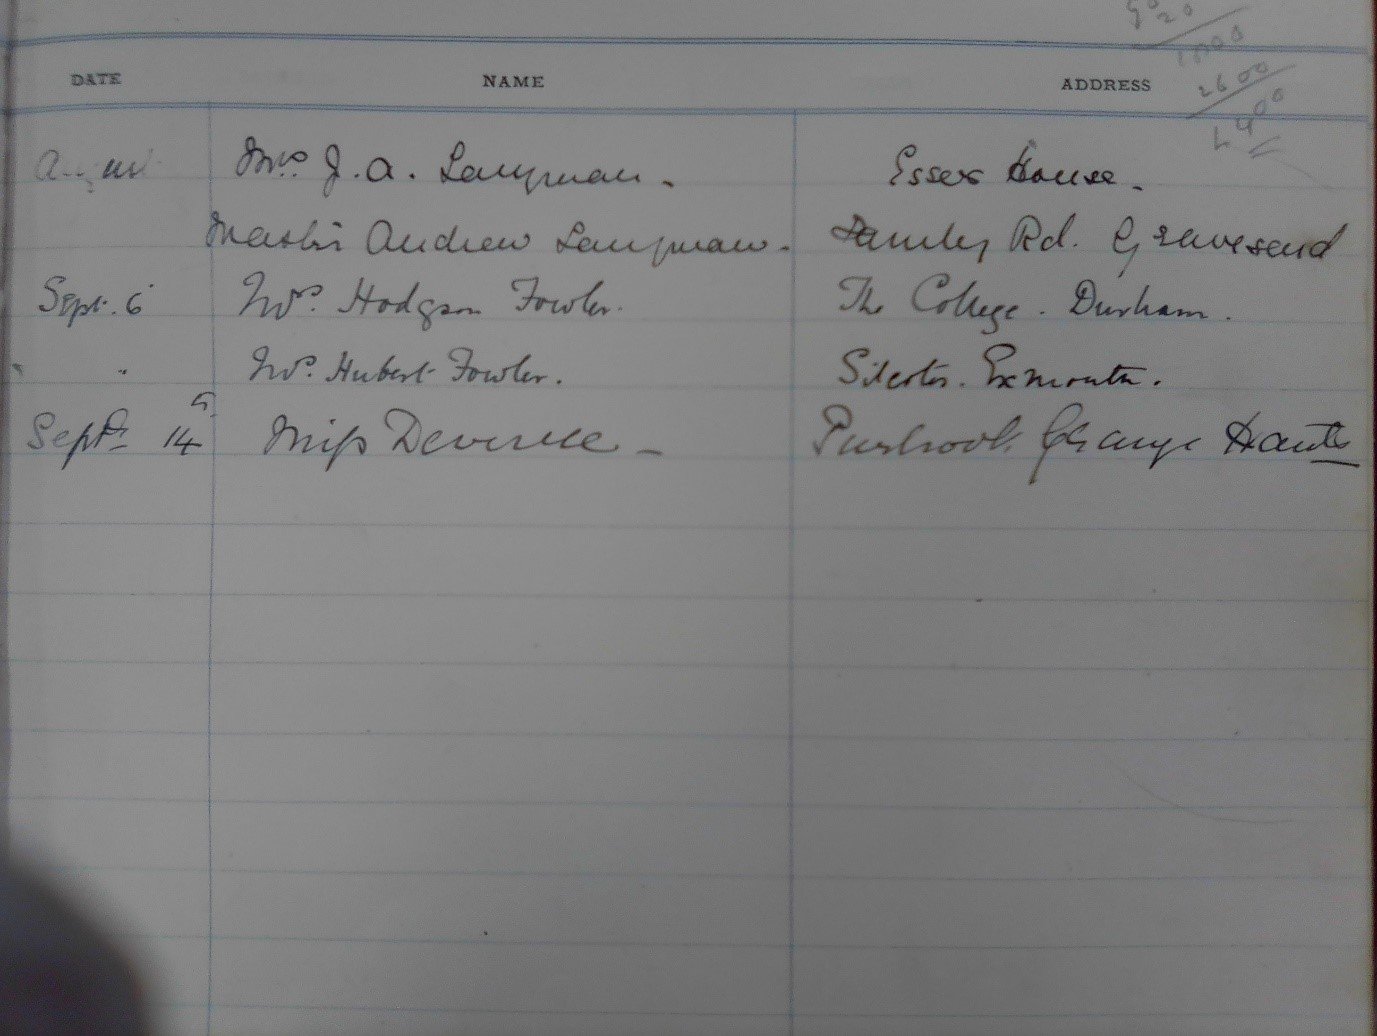 5020
1000
2600
DATE NAME ADDRESS
August Mrs. J. A. Langman. Essex House.
Master Andrew Langman. Darnley Rd. Gravesend
Sept. 6 Mrs. Hodgson Fowler. The College. Durham.
" Mrs. Hubert Fowler. Exmouth.
Septr 14th Miss Deverell Purbrook Grange Hants